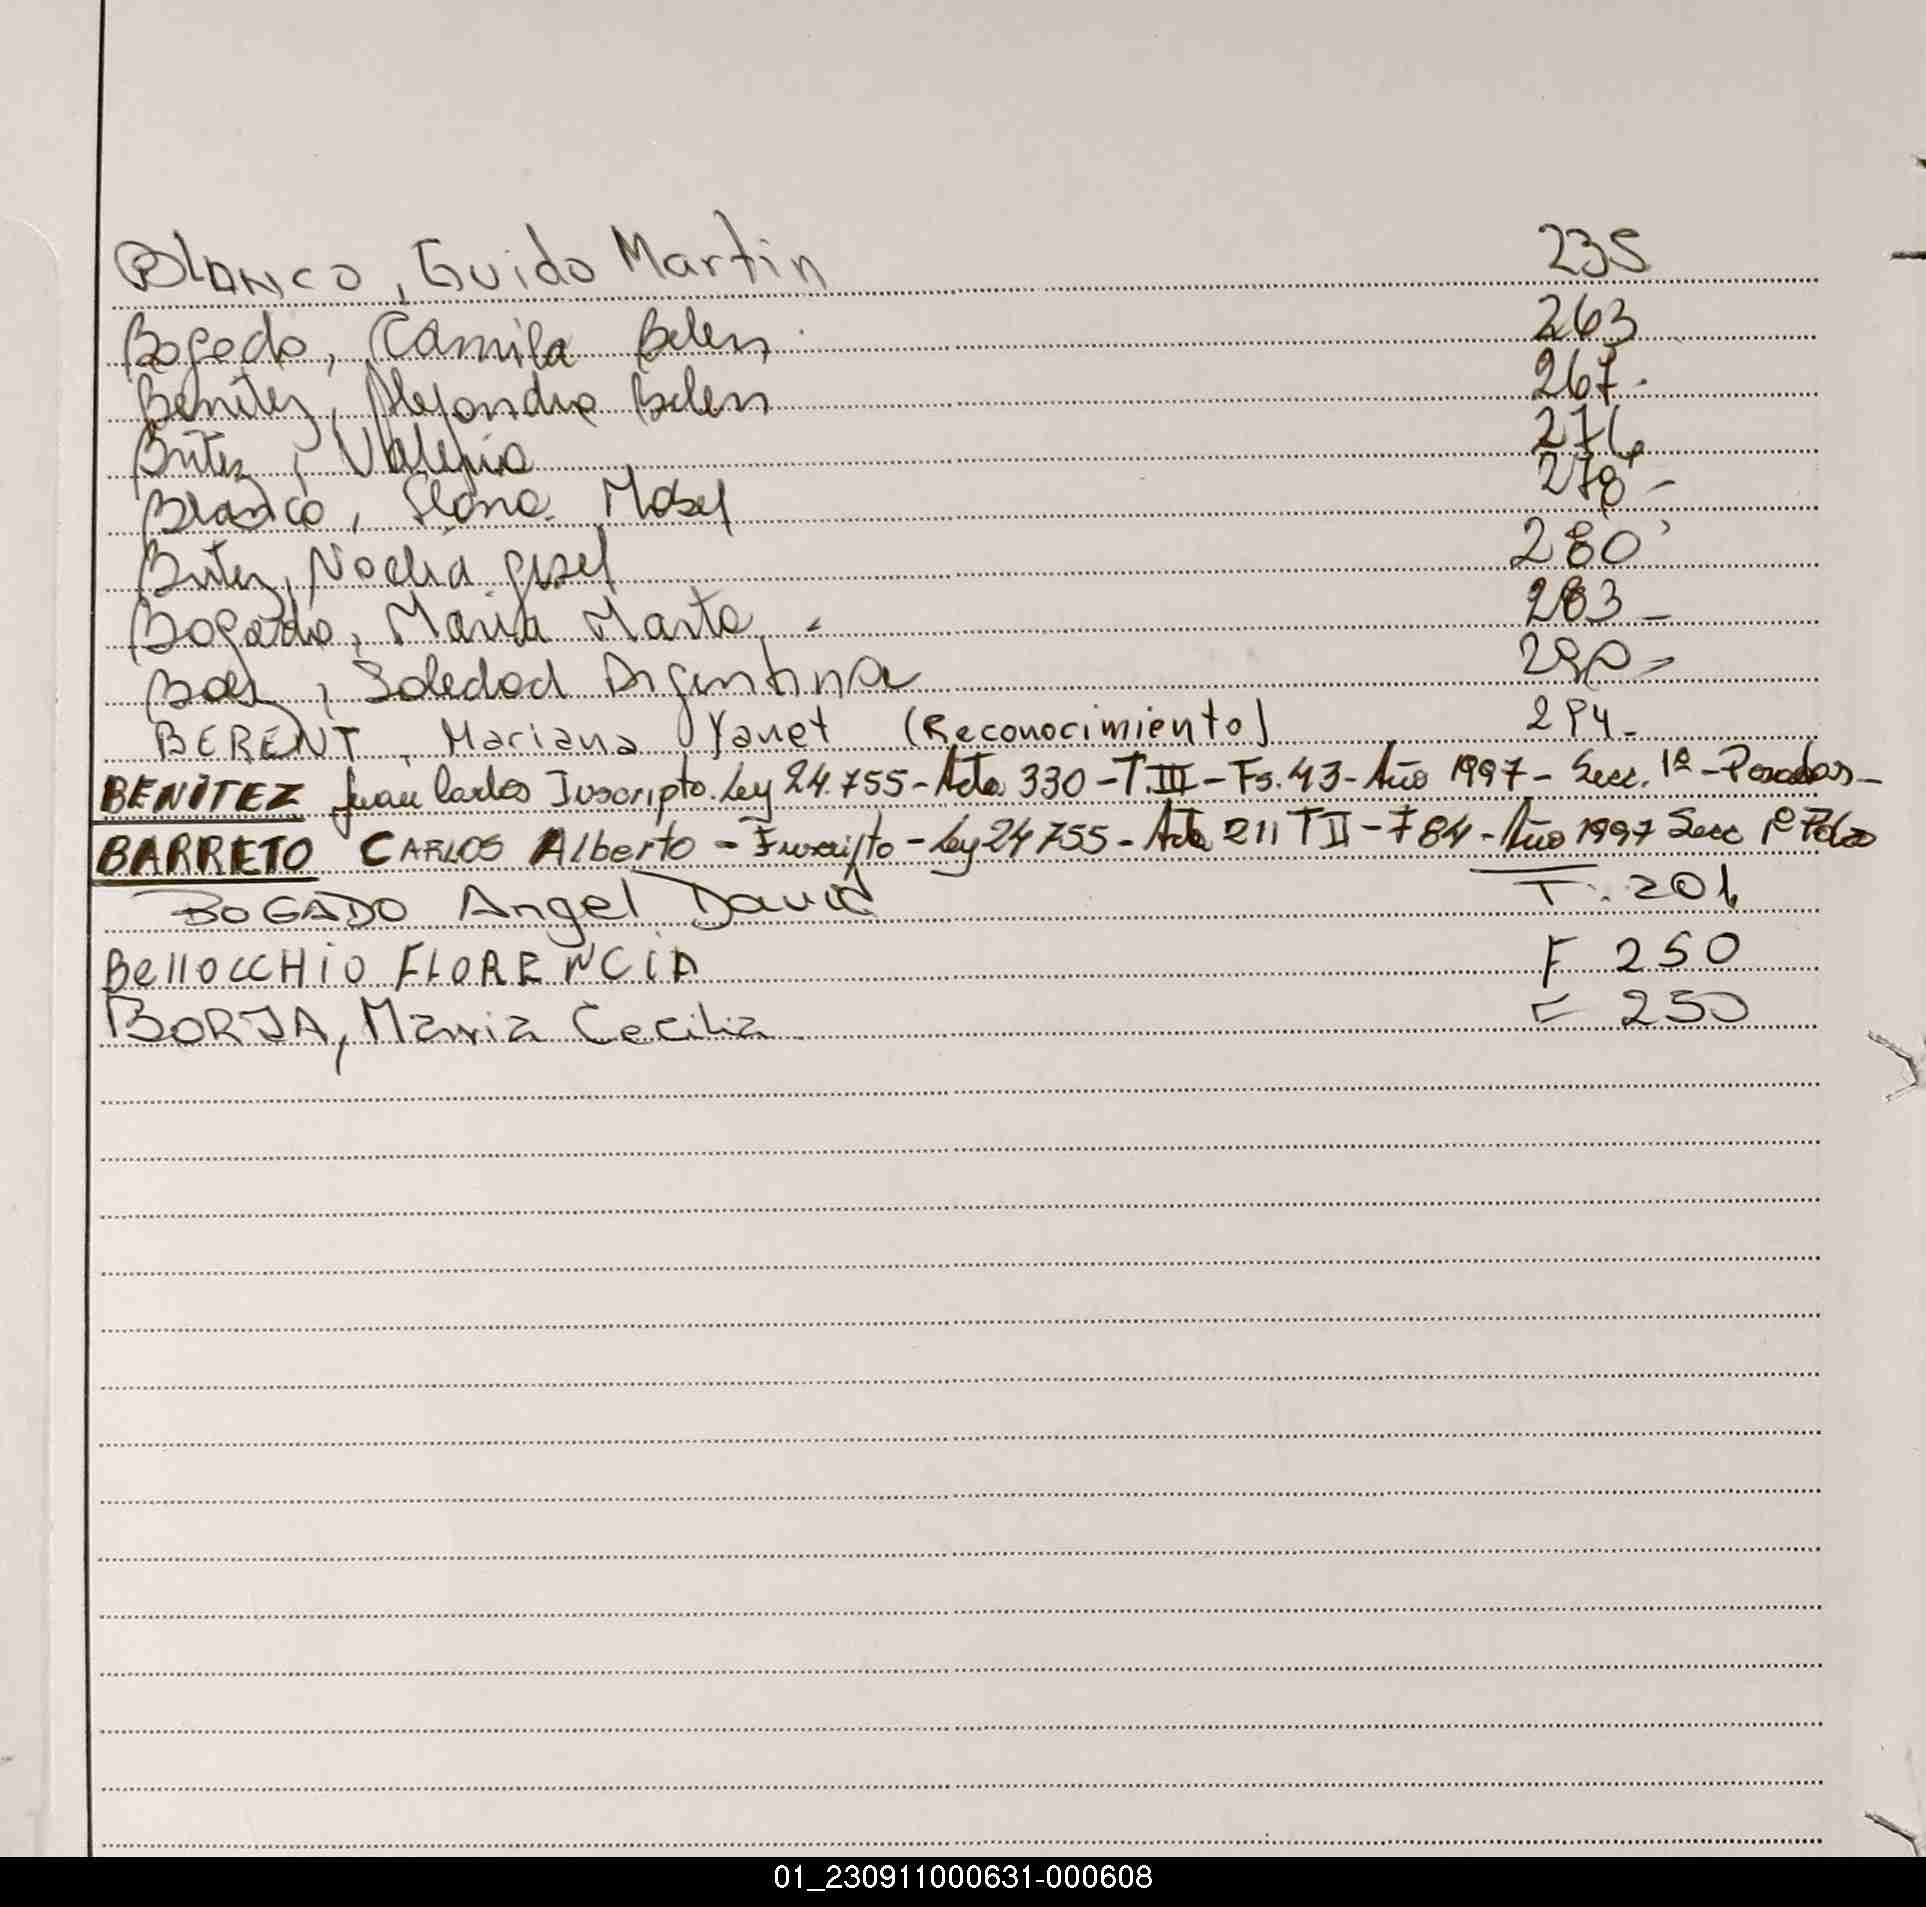 Blanco, Guido Martin 235
Bogado, Camila Belen 263
Benitez, Alejandra Belen 267-
Britez, Valeria 276
Blanco, Mabel 278-
Britez, Nadia Gisel 280
Bogado, Maria Marta - 283-
Baez, Soledad Argentina 290-
BERENT, Mariana Yanet (Reconocimiento) 294-
BENITEZ Juan Carlos Inscripto. Ley 24.755 - Acta 330 - T.III - Fs. 43 - Año 1997 - Secc. 1ª - Posadas -
BARRETO CARLOS Alberto - Inscripto - Ley 24755 - Acta 211 T II - F 84 - Año 1997 Secc 1ª Pdas
BOGADO Angel David T. 201
BellOCCHiO FLORENCIA F 250
BORJA, Maria Cecilia F 250
01_230911000631-000608